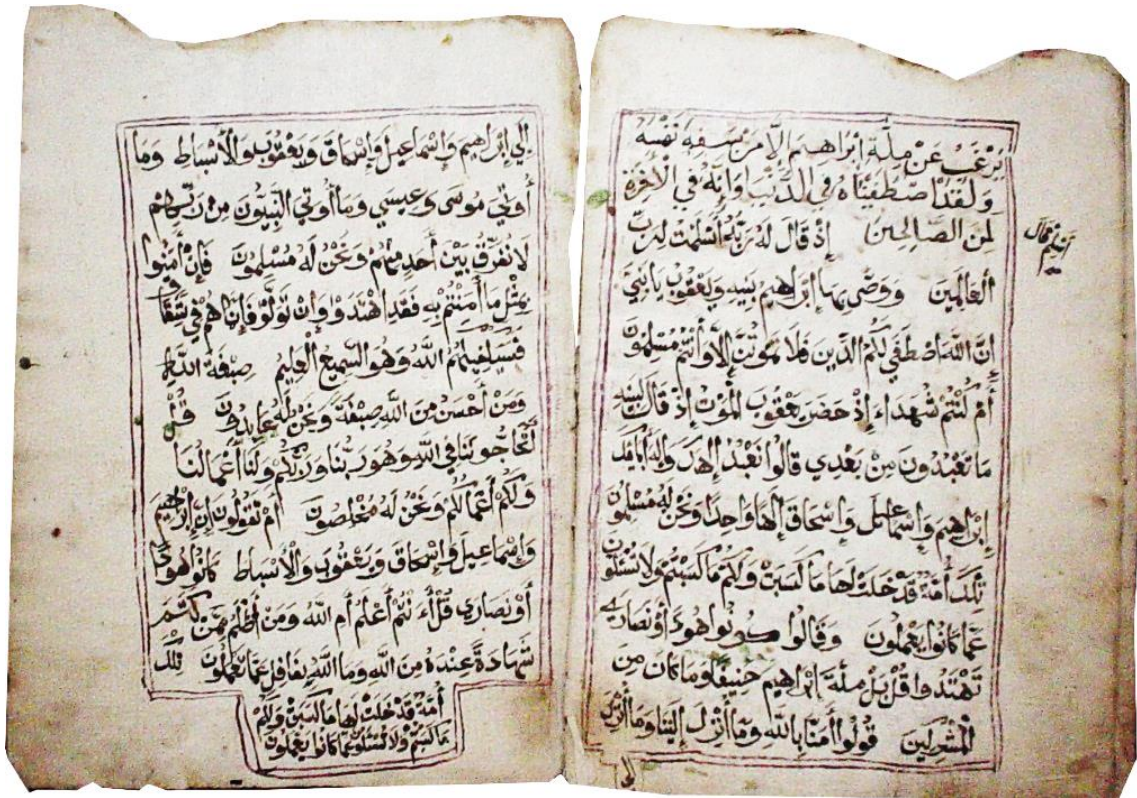 يَرْغَبُ عَنْ مِلَّةِ إِبْرَاهِيمَ إِلَّا مَنْ سَفِهَ نَفْسَهُ
وَلَقَدْ اصْطَفَيْنَاهُ فِي الدُّنْيَا وَإِنَّهُ فِي الْأَخِرَةِ
لَمِنَ الصَّالِحِينَ إِذْ قَالَ لَهُ رَبُّهُ أَسْلَمْتُ لِرَبِّ
أَسْلِمْ قَالَ
الْعَالَمِينَ وَوَصَّى بِهَا إِبْرَاهِيمُ بَنِيهِ وَيَعْقُوبُ يَا بَنِيَّ
إِنَّ اللَّهَ اصْطَفَى لَكُمُ الدِّينَ فَلَا تَمُوتُنَّ إِلَّا وَأَنْتُمْ مُسْلِمُونَ
أَمْ كُنْتُمْ شُهَدَاءَ إِذْ حَضَرَ يَعْقُوبَ الْمَوْتُ إِذْ قَالَ لِبَنِيهِ
مَا تَعْبُدُونَ مِنْ بَعْدِي قَالُوا نَعْبُدُ إِلَهَكَ وَإِلَهَ أَبَائِكَ
إِبْرَاهِيمَ وَإِسْمَاعِيلَ وَإِسْحَاقَ إِلَهًا وَاحِدًا وَنَحْنُ لَهُ مُسْلِمُونَ
تِلْكَ أُمَّةٌ قَدْ خَلَتْ لَهَا مَا كَسَبَتْ وَلَكُمْ مَا كَسَبْتُمْ وَلَا تُسْئَلُونَ
عَمَّا كَانُوا يَعْمَلُونَ وَقَالُوا كُونُوا هُودًا أَوْ نَصَارَى
تَهْتَدُوا قُلْ بَلْ مِلَّةَ إِبْرَاهِيمَ حَنِيفًا وَمَا كَانَ مِنَ
الْمُشْرِكِينَ قُولُوا أَمَنَّا بِاللَّهِ وَمَا أُنْزِلَ إِلَيْنَا وَمَا أُنْزِلَ
إلى
إِلَى إِبْرَاهِيمَ وَإِسْمَاعِيلَ وَإِسْحَاقَ وَيَعْقُوبَ وَالْأَسْبَاطِ وَمَا
أُوتِيَ مُوسَى وَعِيسَى وَمَا أُوتِيَ النَّبِيُّونَ مِنْ رَبِّهِمْ
لَا نُفَرِّقُ بَيْنَ أَحَدٍ مِنْهُمْ وَنَحْنُ لَهُ مُسْلِمُونَ فَإِنْ أَمَنُوا
بِمِثْلِ مَا أَمَنْتُمْ بِهِ فَقَدِ اهْتَدَوْا وَإِنْ تَوَلَّوْا فَإِنَّمَا هُمْ فِي شِقَاقٍ
فَسَيَكْفِيكَهُمُ اللَّهُ وَهُوَ السَّمِيعُ الْعَلِيمُ صِبْغَةَ اللَّهِ
وَمَنْ أَحْسَنُ مِنَ اللَّهِ صِبْغَةً وَنَحْنُ لَهُ عَابِدُونَ قُلْ
أَتُحَاجُّونَنَا فِي اللَّهِ وَهُوَ رَبُّنَا وَرَبُّكُمْ وَلَنَا أَعْمَالُنَا
وَلَكُمْ أَعْمَالُكُمْ وَنَحْنُ لَهُ مُخْلِصُونَ أَمْ تَقُولُونَ إِنَّ إِبْرَاهِيمَ
وَإِسْمَاعِيلَ وَإِسْحَاقَ وَيَعْقُوبَ وَالْأَسْبَاطَ كَانُوا هُودًا
أَوْ نَصَارَى قُلْ أَءَنْتُمْ أَعْلَمُ أَمِ اللَّهُ وَمَنْ أَظْلَمُ مِمَّنْ كَتَمَ
شَهَادَةً عِنْدَهُ مِنَ اللَّهِ وَمَا اللَّهُ بِغَافِلٍ عَمَّا تَعْمَلُونَ تِلْكَ
أُمَّةٌ قَدْ خَلَتْ لَهَا مَا كَسَبَتْ وَلَكُمْ
مَا كَسَبْتُمْ وَلَا تُسْئَلُونَ عَمَّا كَانُوا يَعْمَلُونَ